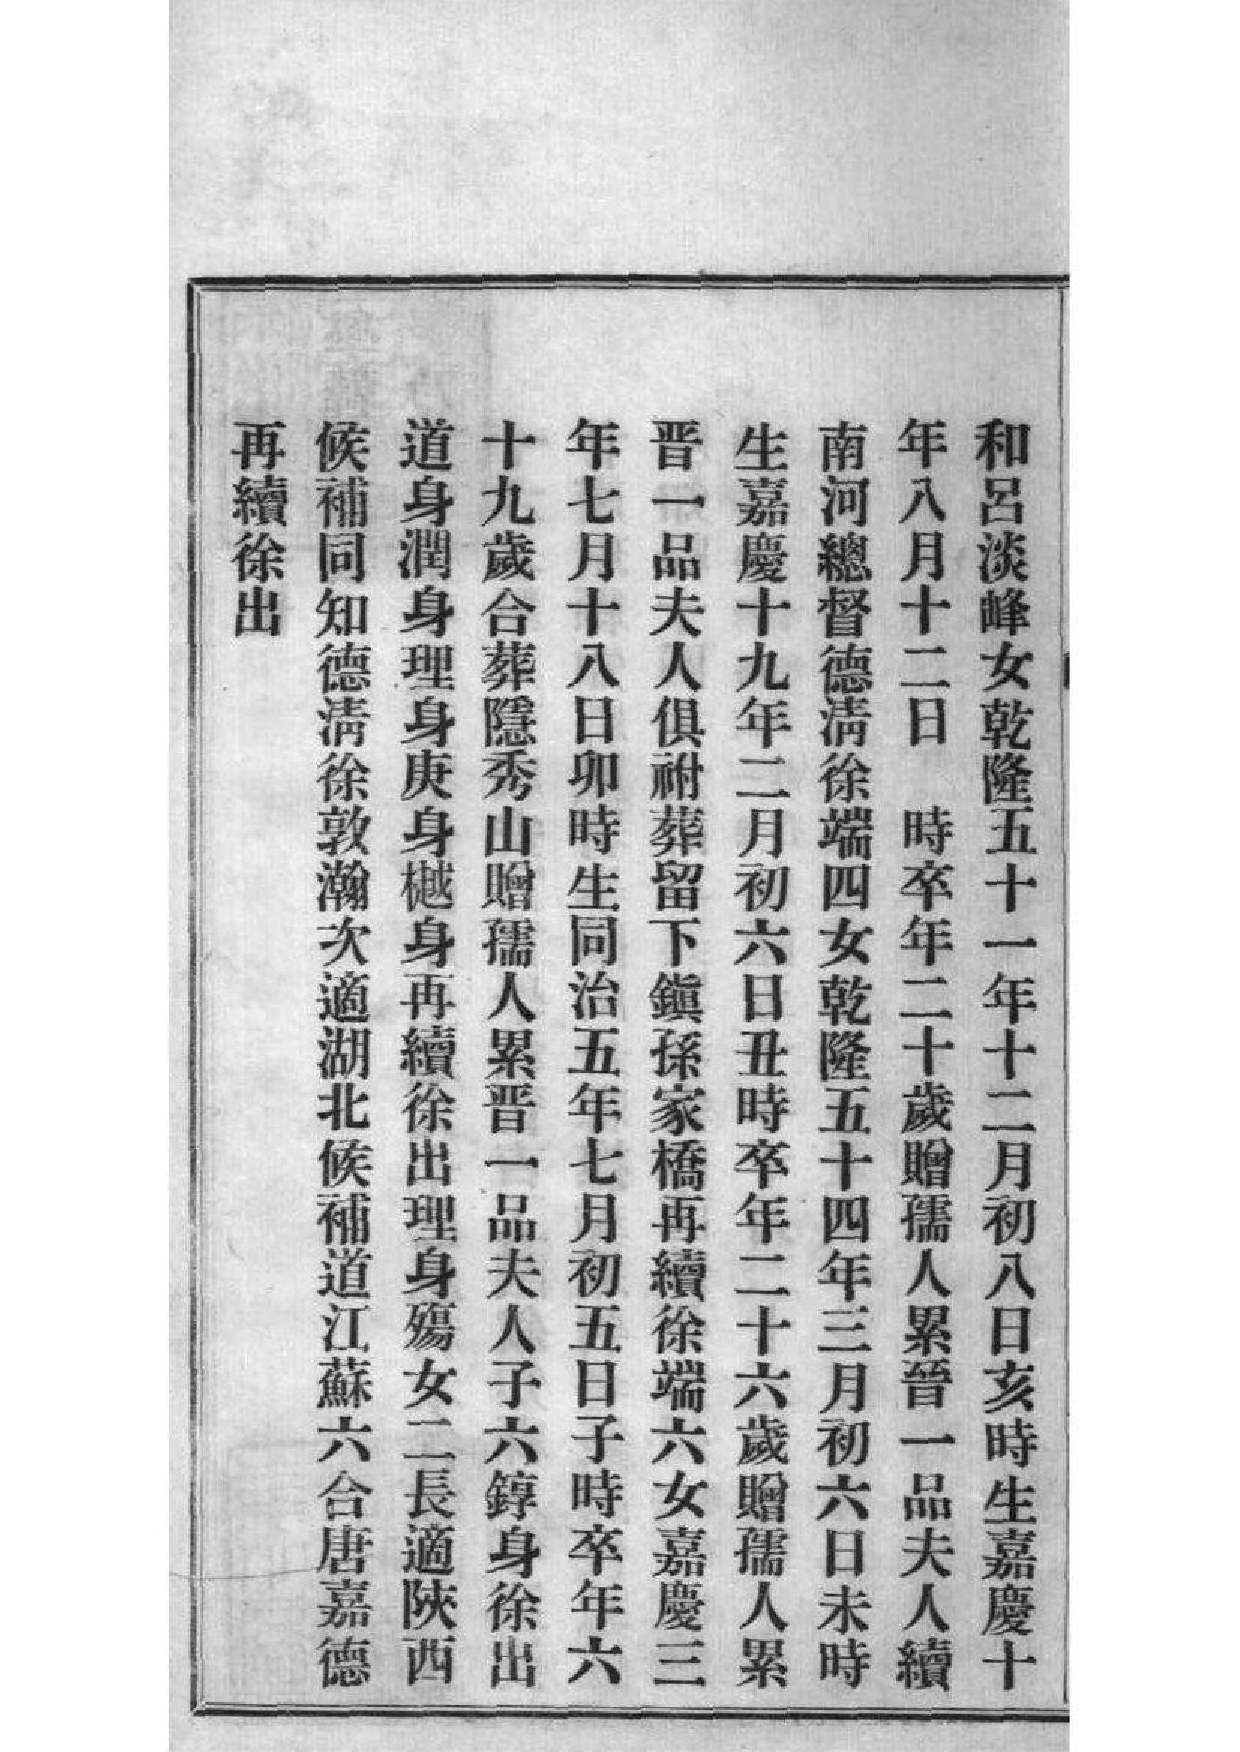 和呂淡峰女乾隆五十一年十二月初八日亥時生嘉慶十
年八月十二日　時卒年二十歲贈孺人累晉一品夫人續
南河總督德淸徐端四女乾隆五十四年三月初六日未時
生嘉慶十九年二月初六日丑時卒年二十六歲贈孺人累
晋一品夫人俱祔葬留下鎭孫家橋再續徐端六女嘉慶三
年七月十八日卯時生同治五年七月初五日子時卒年六
十九歲合葬隱秀山贈孺人累晋一品夫人子六錞身徐出
道身潤身理身庚身樾身再續徐出理身殤女二長適陝西
候補同知德淸徐敦瀚次適湖北候補道江蘇六合唐嘉德
再續徐出